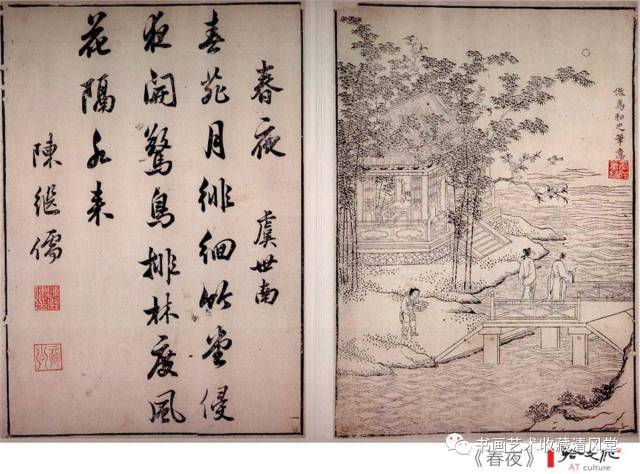 春夜 虞世南
春苑月徘徊竹堂侵
夜開驚鳥排林度風
花隔水来
陳繼儒
倣馬和之筆意
书画艺术收藏清风堂
《春夜》
AT culture